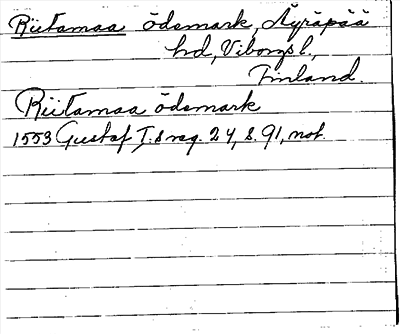 Riitamaa ödemark, Äyräpää
hd, Viborgs l.,
Finland.
Riitamaa ödemark
1553 Gustaf I:s reg. 24, s. 91, not.